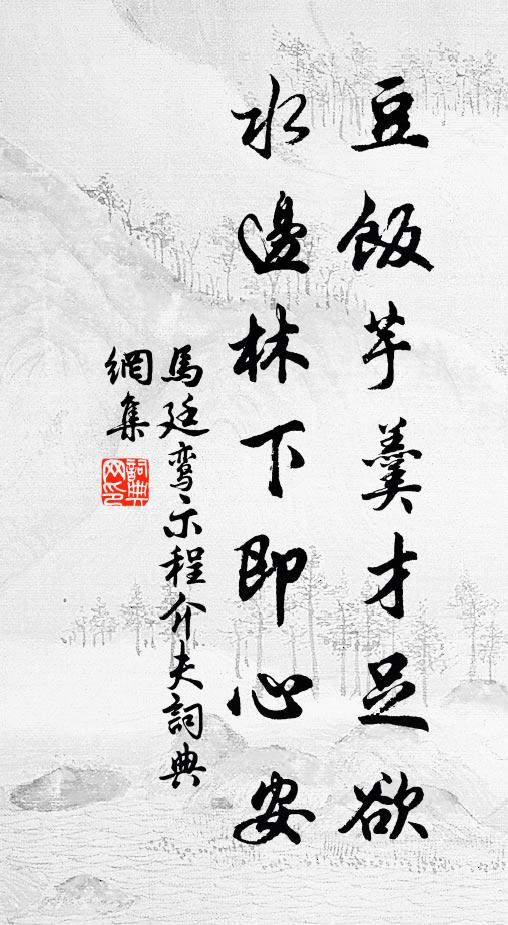 豆飯芋羹才足欲
水邊林下即心安
馬廷鸞示程介夫詞典
網集
詞典
网印